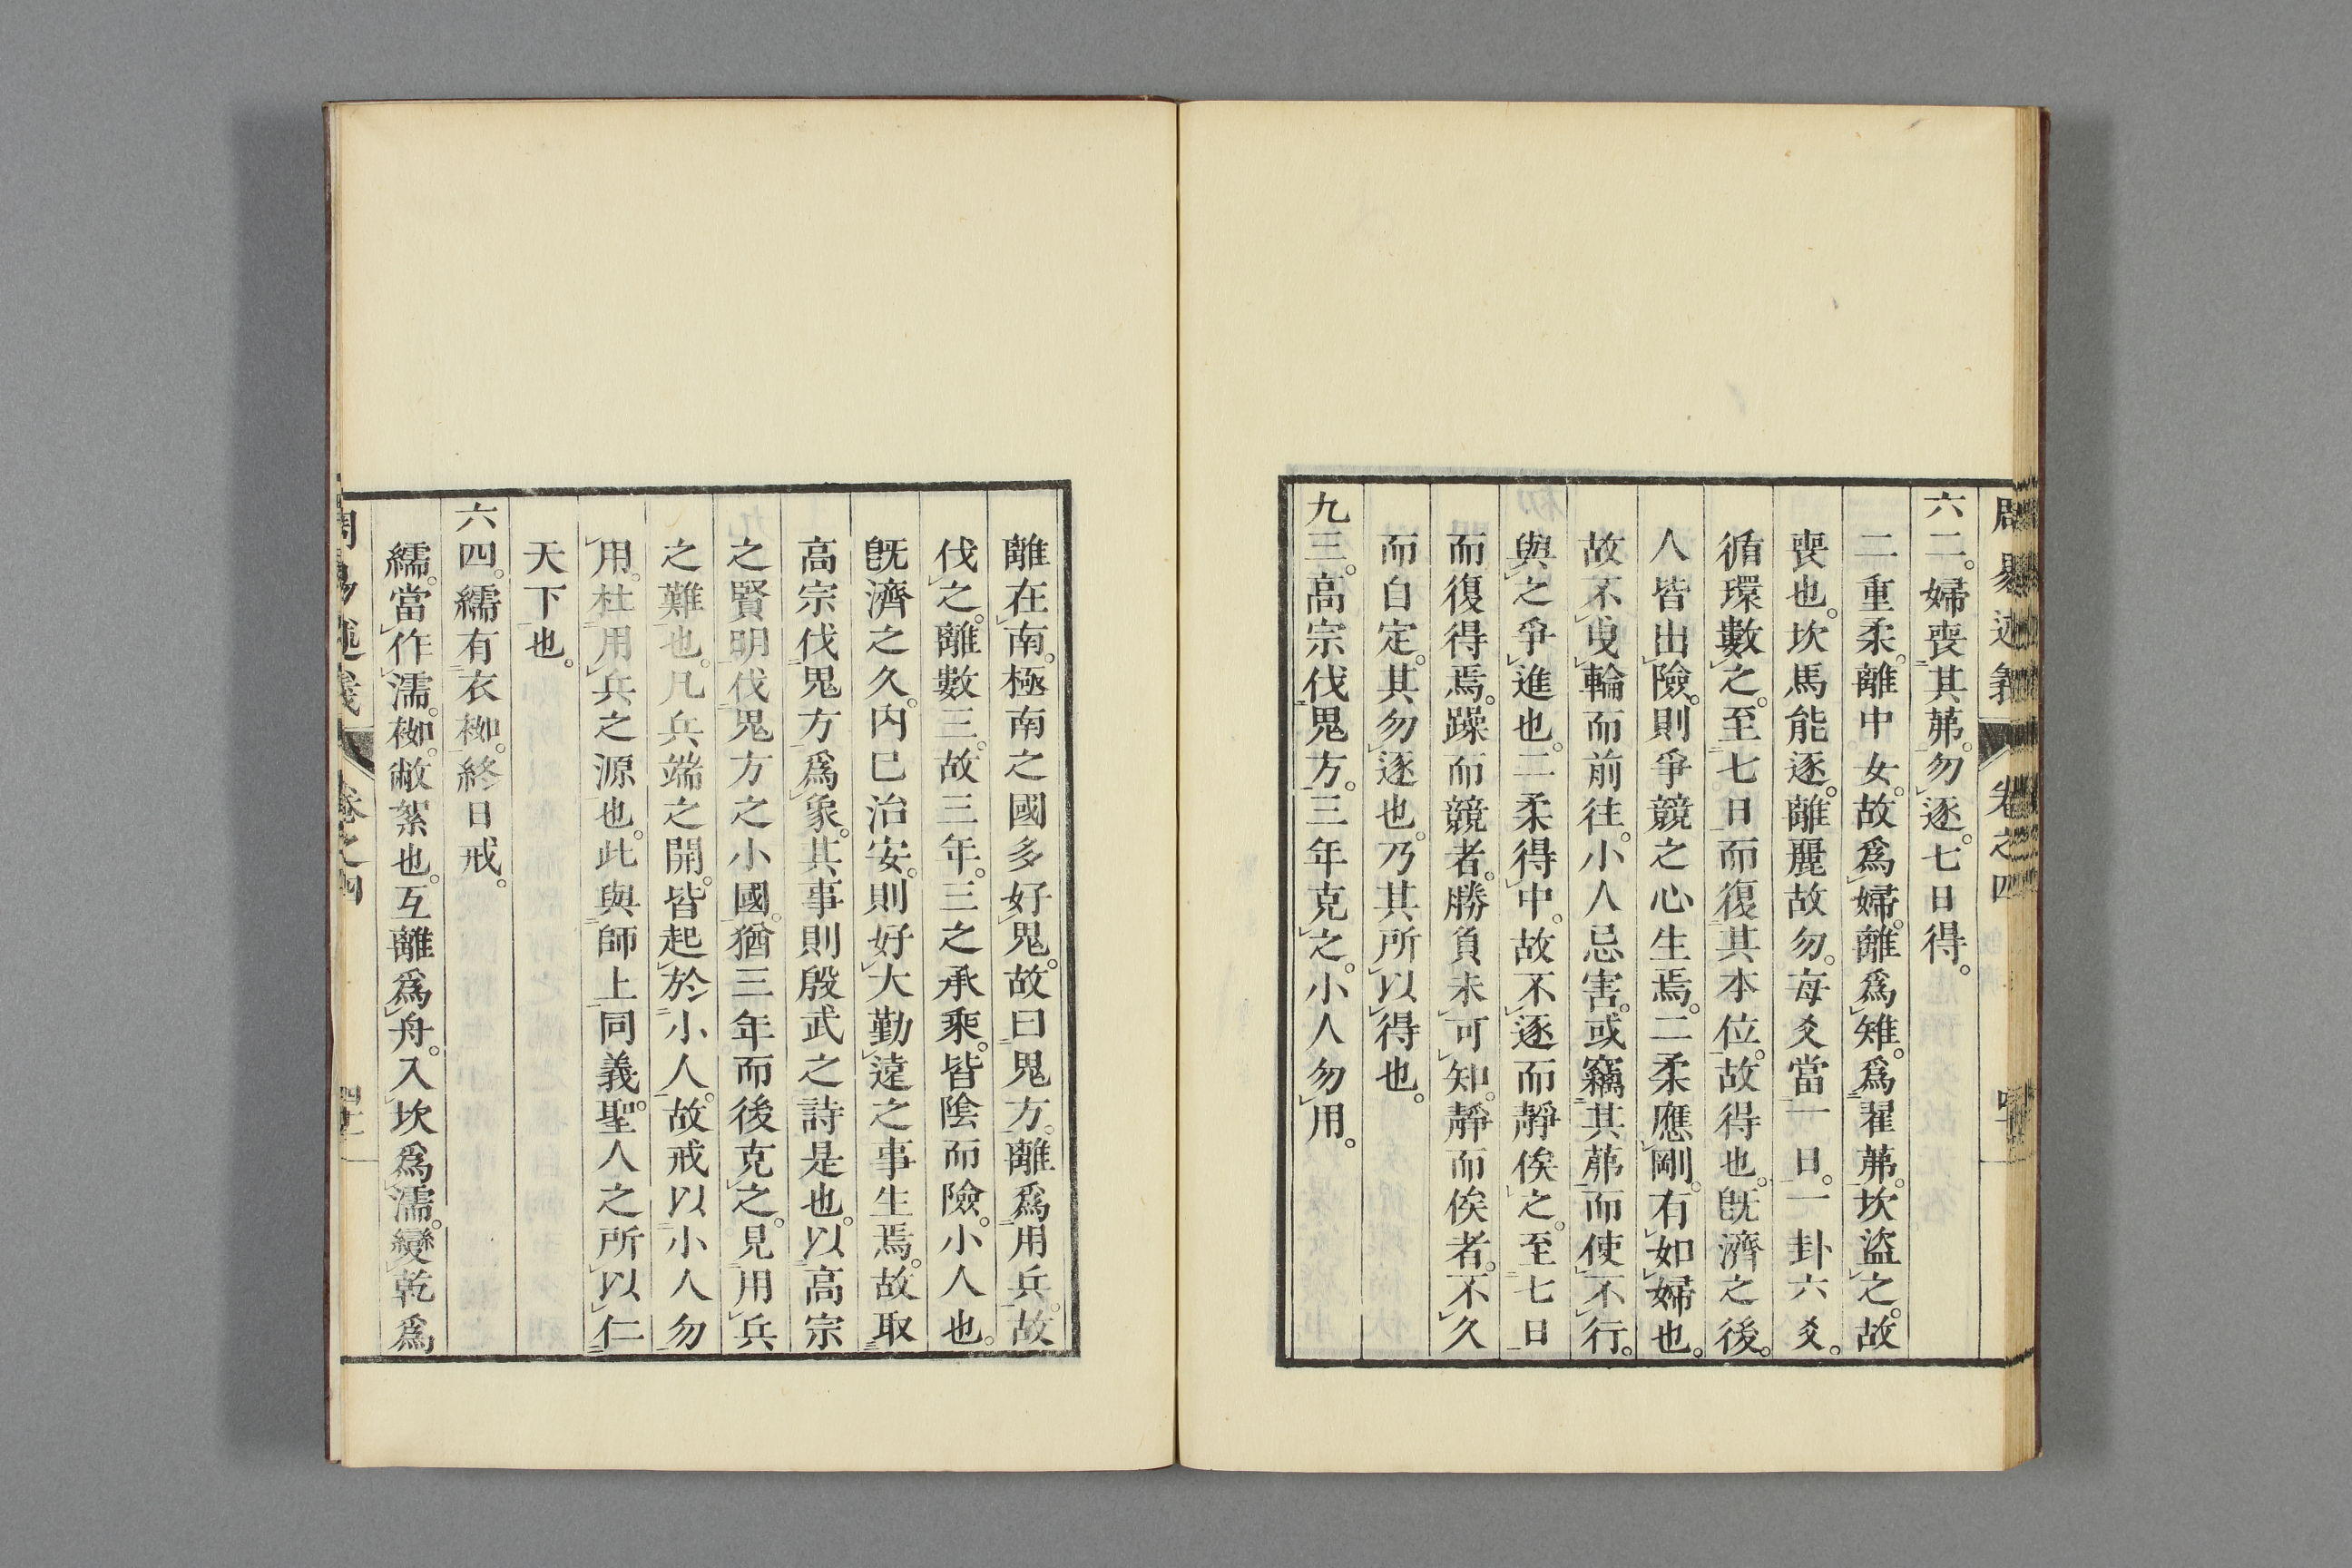 周易述義 卷之四
六二。婦喪其茀。勿逐。七日得。
二重柔。離中女。故爲婦。離爲雉。爲翟茀。坎盜之。故
喪也。坎馬能逐。離麗故勿。每爻當一日。一卦六爻。
循環數之。至七日而復其本位。故得也。旣濟之後。
人皆出險。則爭競之心生焉。二柔應剛。有如婦也。
故不曳輪而前往。小人忌害。或竊其茀而使不行。
與之爭進也。二柔得中。故不逐而靜俟之。至七日
而復得焉。躁而競者。勝負未可知。靜而俟者。不久
而自定。其勿逐也。乃其所以得也。
九三。高宗伐鬼方。三年克之。小人勿用。
離在南。極南之國多好鬼。故曰鬼方。離爲用兵。故
伐之。離數三。故三年。三之承乘。皆陰而險。小人也。
旣濟之久。內已治安。則好大勤遠之事生焉。故取
高宗伐鬼方爲象。其事則殷武之詩是也。以高宗
之賢明伐鬼方之小國。猶三年而後克之。見用兵
之難也。凡兵端之開。皆起於小人。故戒以小人勿
用。杜用兵之源也。此與師上同義。聖人之所以仁
天下也。
六四。繻有衣袽。終日戒。
繻。當作濡。袽。敝絮也。互離爲舟。入坎爲濡。變乾爲
周易述義 卷之四